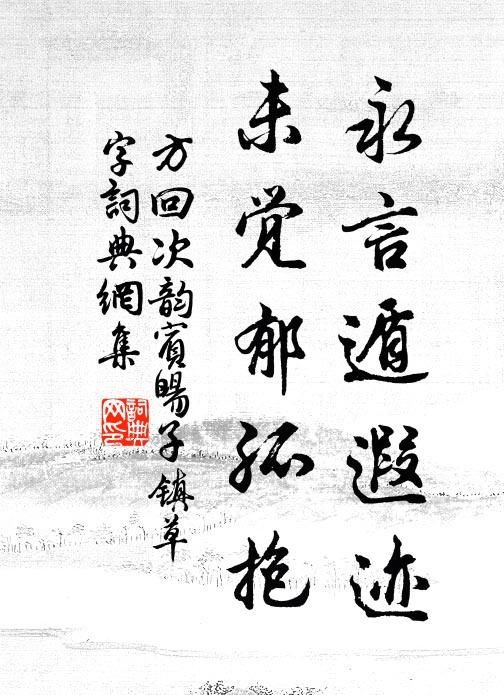 永言遁遐迹
未觉郁孤抱
方回次韵宾旸子镇草
字词典网集
词典
网印